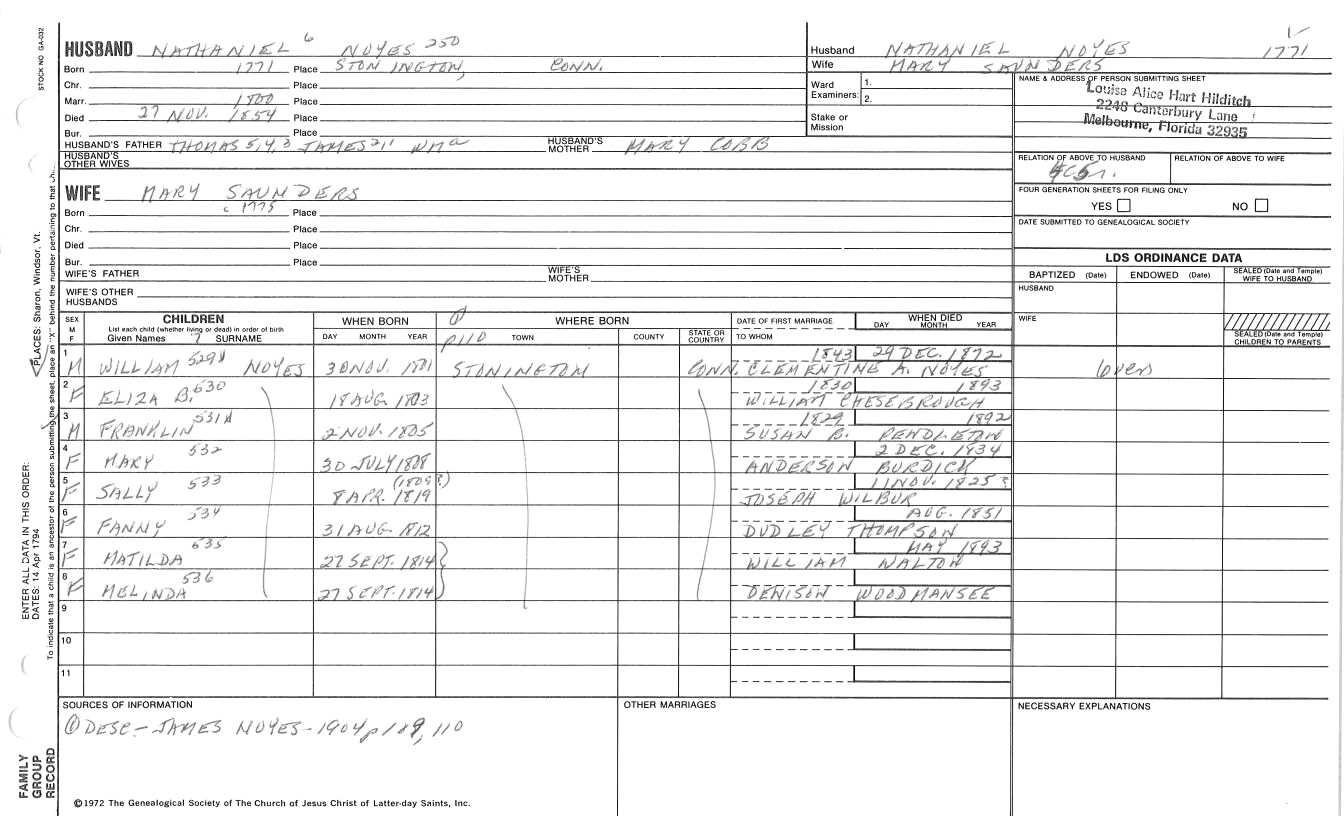 STOCK NO GA-032
HUSBAND NATHANIEL 6 NOYES 250
Born 1771 Place STONINGTON, CONN.
Chr. Place
Marr. 1800 Place
Died 27 NOV. 1854 Place
Bur. Place
HUSBAND'S FATHER THOMAS 5,4,3 JAMES 2,1 Wm a HUSBAND'S MOTHER MARY COBB
HUSBAND'S OTHER WIVES
Husband NATHANIEL NOYES 1771
Wife MARY SAUNDERS
Ward Examiners: 1.
2.
Stake or Mission
NAME & ADDRESS OF PERSON SUBMITTING SHEET
Louise Alice Hart Hilditch
2248 Canterbury Lane
Melbourne, Florida 32935
RELATION OF ABOVE TO HUSBAND RELATION OF ABOVE TO WIFE
FOUR GENERATION SHEETS FOR FILING ONLY
YES NO
DATE SUBMITTED TO GENEALOGICAL SOCIETY
WIFE MARY SAUNDERS
Born c 1775 Place
Chr. Place
Died Place
Bur. Place
WIFE'S FATHER WIFE'S MOTHER
WIFE'S OTHER HUSBANDS
LDS ORDINANCE DATA
BAPTIZED (Date) ENDOWED (Date) SEALED (Date and Temple) WIFE TO HUSBAND
HUSBAND
WIFE
SEALED (Date and Temple) CHILDREN TO PARENTS
SEX M F CHILDREN WHEN BORN WHERE BORN DATE OF FIRST MARRIAGE WHEN DIED
List each child (whether living or dead) in order of birth
Given Names 7 SURNAME DAY MONTH YEAR p110 TOWN COUNTY STATE OR COUNTRY TO WHOM DAY MONTH YEAR
1 1843 29 DEC. 1872
M WILLIAM 529 NOYES 30 NOV. 1801 STONINGTON CONN. CLEMENTINE A. NOYES over
2 1830 1893
F ELIZA B. 530 18 AUG. 1803 WILLIAM CHESEBROUGH
3 1829 1892
M FRANKLIN 531 2 NOV. 1805 SUSAN B. PENDLETON
4 2 DEC. 1834
F MARY 532 30 JULY 1808 ANDERSON BURDICK
5 (1809?) 11 NOV. 1825?
F SALLY 533 8 APR. 1819 JOSEPH WILBUR
6 AUG. 1851
F FANNY 534 31 AUG. 1812 DUDLEY THOMPSON
7 MAY 1893
F MATILDA 535 27 SEPT. 1814 WILLIAM NALTON
8
F MELINDA 536 27 SEPT. 1814 DENISON WOODMANSEE
9
10
11
SOURCES OF INFORMATION OTHER MARRIAGES NECESSARY EXPLANATIONS
① DESC - JAMES NOYES - 1904 p 109, 110
©1972 The Genealogical Society of The Church of Jesus Christ of Latter-day Saints, Inc.
FAMILY GROUP RECORD
ENTER ALL DATA IN THIS ORDER:
DATES: 14 Apr 1794
PLACES: Sharon, Windsor, Vt.
To indicate that a child is an ancestor of the person submitting the sheet, place an "X" behind the number pertaining to that